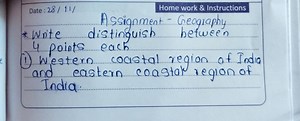 Date : 28 / 11 /
Home work & Instructions
Assignment - Geography
* Write distinguish between
4 points each
① Western coastal region of India
and eastern coastal region of
India.